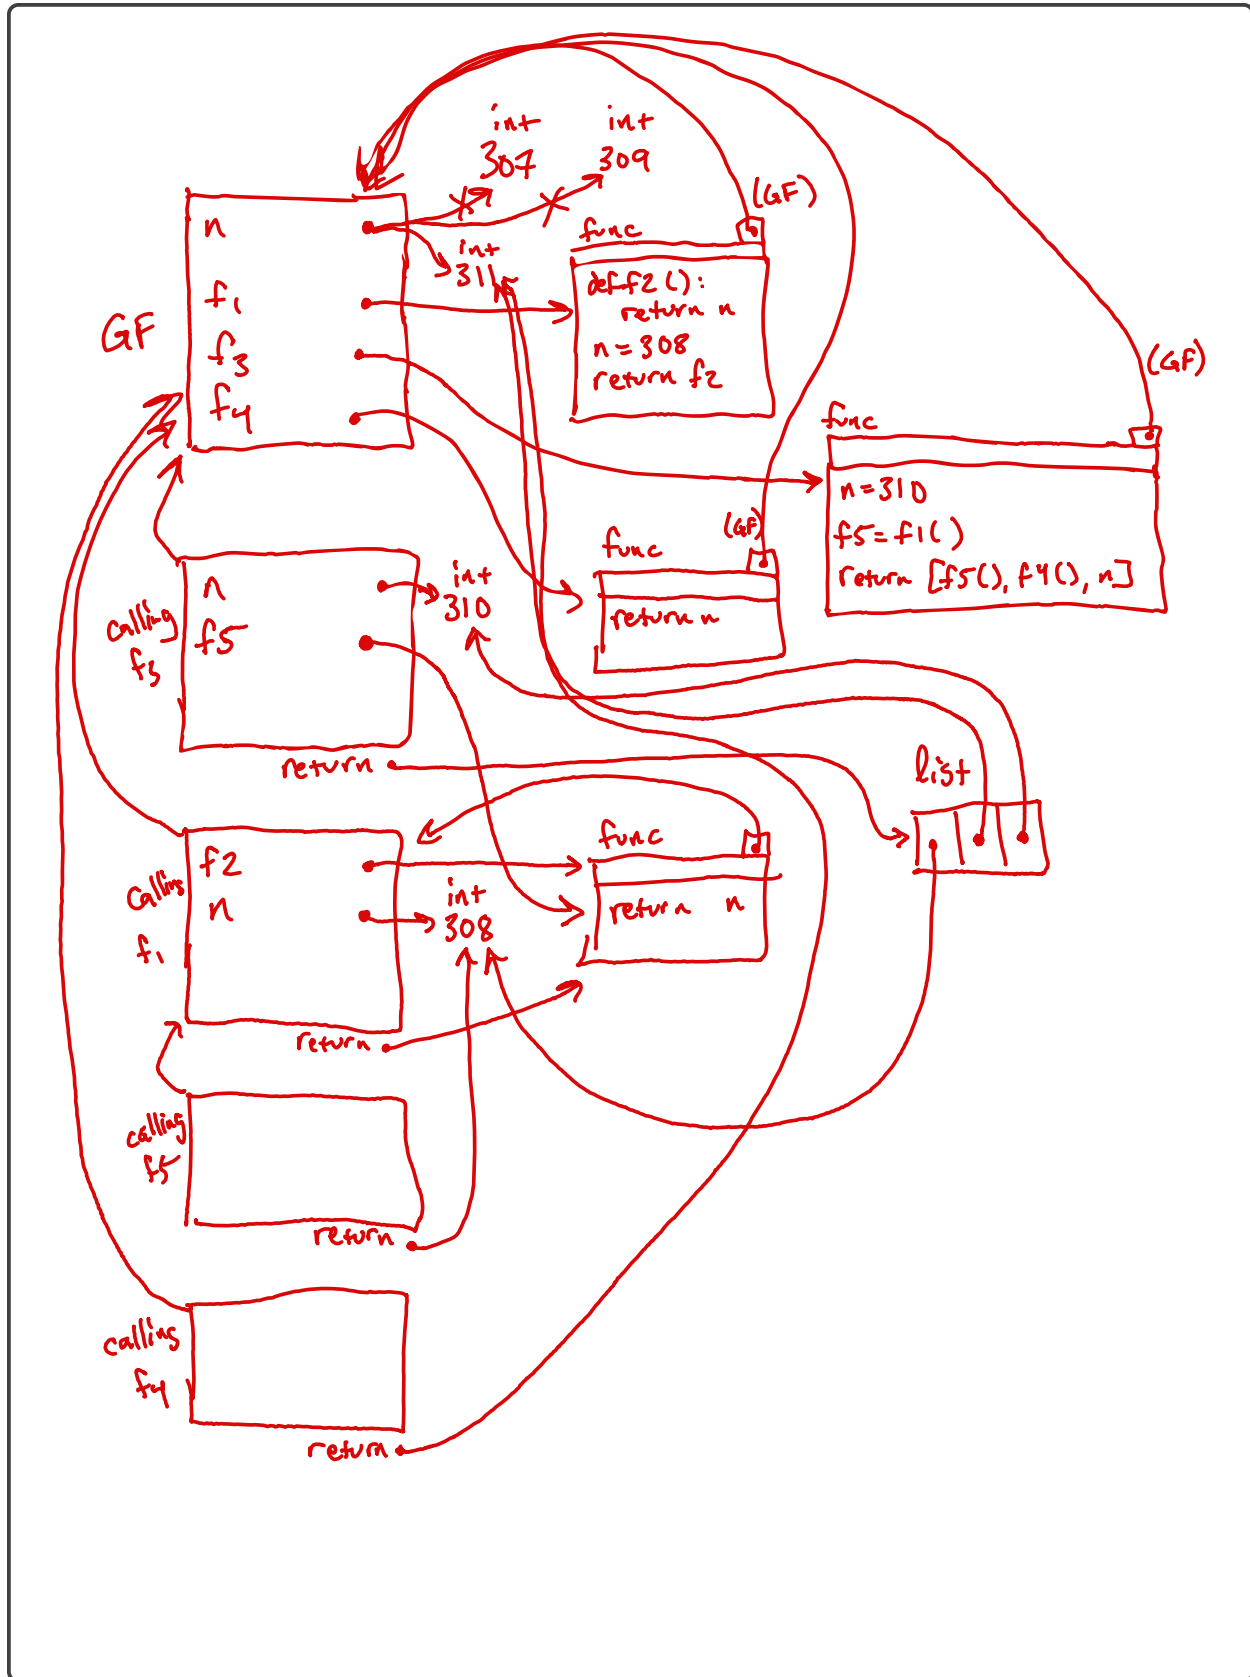 int
307
int
309
(GF)
n
func
int
311
def f2():
return n
n=308
return f2
GF
f1
f3
f4
(GF)
func
n=310
f5=f1()
return [f5(), f4(), n]
(GF)
func
return n
calling
f3
n
f5
int
310
return
list
calling
f1
f2
n
int
308
func
return n
return
calling
f5
return
calling
f4
return